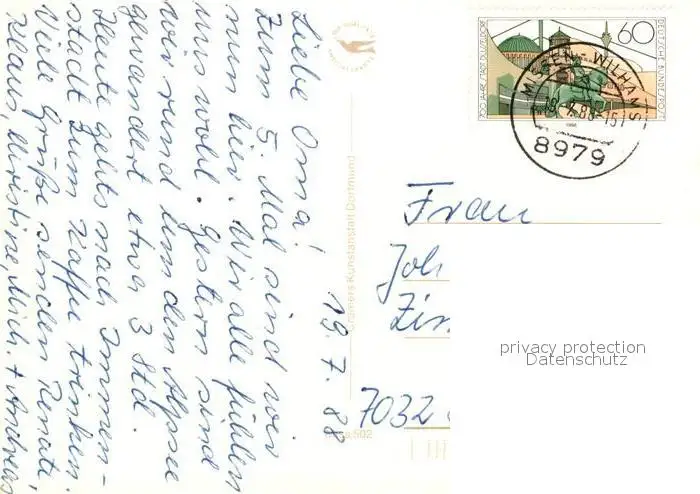 19. 7. 88
Liebe Oma!
Zum 5. Mal sind wir
nun hier. Wir alle fühlen
uns wohl. Gestern sind
wir rund um den Alpsee
gewandert etwa 3 Std.
Heute gehts nach Immen-
stadt zum Kaffe trinken.
Viele Grüße senden Renate,
Klaus, Christine, Mich. + Andreas
Cramers Kunstanstalt Dortmund
60
DEUTSCHE BUNDESPOST
700 JAHRE STADT DÜSSELDORF
1988
MISSEN-WILHAMS
8979
Frau
Joh
Zim
7032
privacy protection
Datenschutz